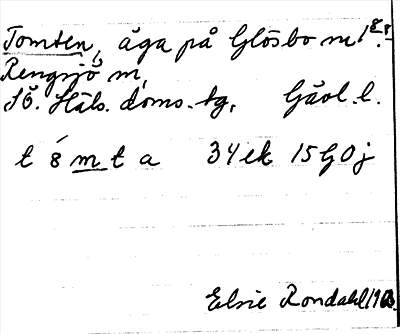 Tomten, äga på Glösbo nr 1 8.8
Rengsjö sn,
Sö. Häls. doms. tg, Gävl. l.
t 8́ m t a 34ek 15G0j
Elsie Rondahl 19